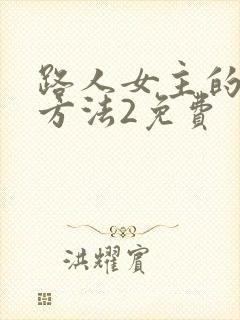 路人女主的
方法2免費
洪耀賓